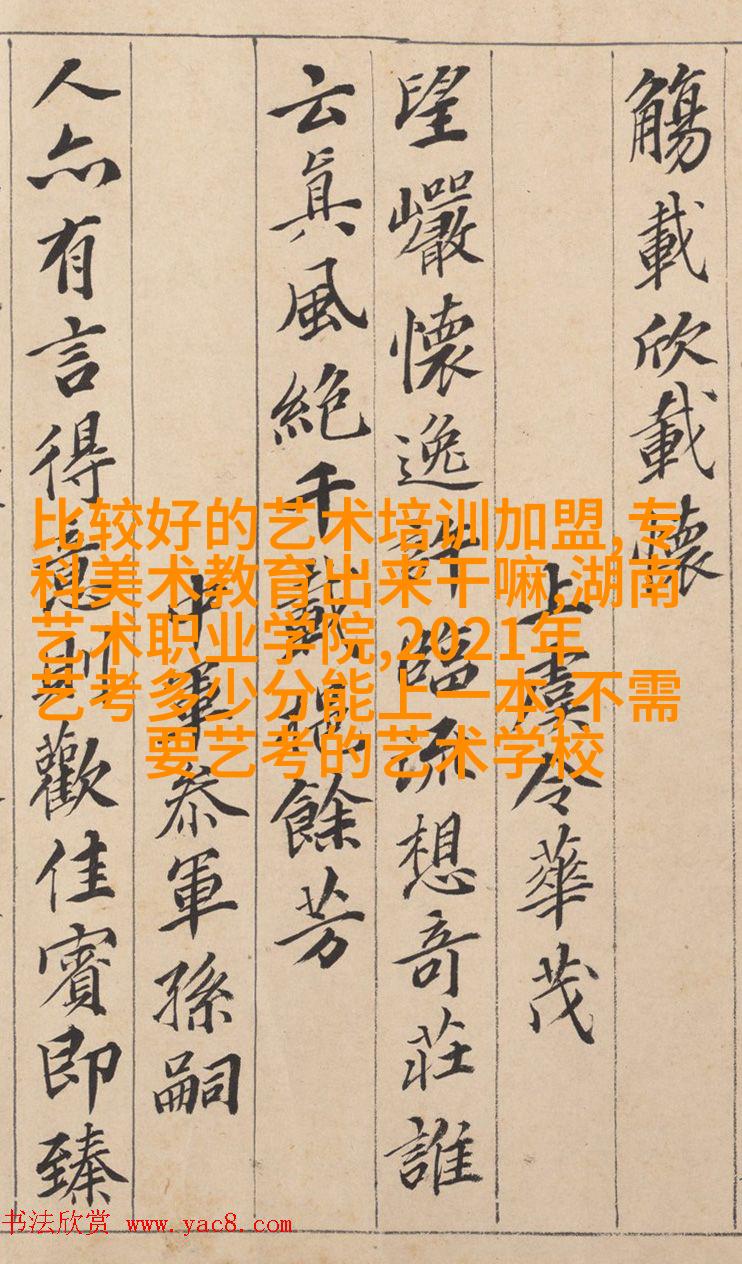 觴載欣載懷
上虞令華茂
望巖懷逸許臨流想奇莊誰
云眞風絕千載挹餘芳
中軍叅軍孫嗣
人亦有言得意則歡佳賓即臻
比较好的艺术培训加盟,专
科美术教育出来干嘛,湖南
艺术职业学院,2021年
艺考多少分能上一本,不需
要艺考的艺术学校
书法欣赏 www.yac8.com